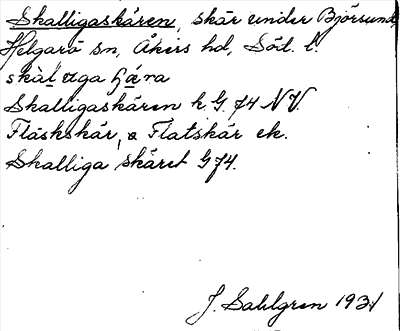 Skalligaskären, skär under Björsund,
Helgarö sn, Åkers hd, Söd. l.
skàl aga ʃǟra
Skalligaskären k. G. 74 NV.
Fläskskär, & Flatskär ek.
Skalliga skäret G 74.
J. Sahlgren 1931